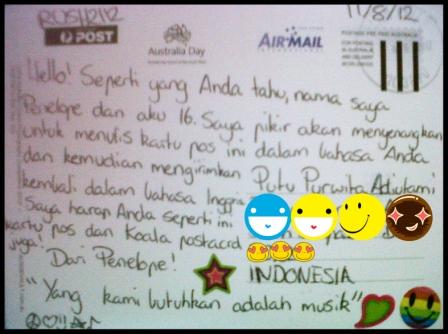 RUSH2112
11/8/12
POST
Australia Day
AIR MAIL
POSTAGE PRE-PAID AUSTRALIA
Hello! Seperti yang Anda tahu, nama saya
Penelope dan aku 16. Saya pikir akan menyenangkan
untuk menulis kartu pos ini dalam bahasa Anda
dan kemudian mengirimkan
kembali dalam bahasa Inggris
Saya harap Anda seperti ini
kartu pos dan Koala postcard
juga!
Dari Penelope!
"Yang kami butuhkan adalah musik"
Putu Purwita Adiutami
INDONESIA